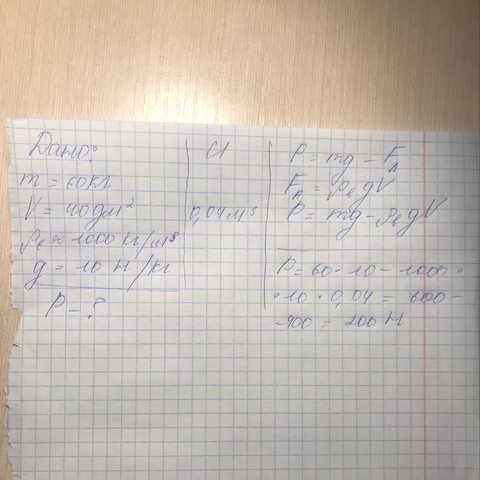 Дано:
m = 60кг
V = 40дм²
ρв = 1000 кг/м³
g = 10 Н/кг
P - ?
СИ
0,04м³
P = mg - F_A
F_A = ρв gV
P = mg - ρв gV
P = 60 · 10 - 1000 ·
· 10 · 0,04 = 600 -
- 400 = 200 Н